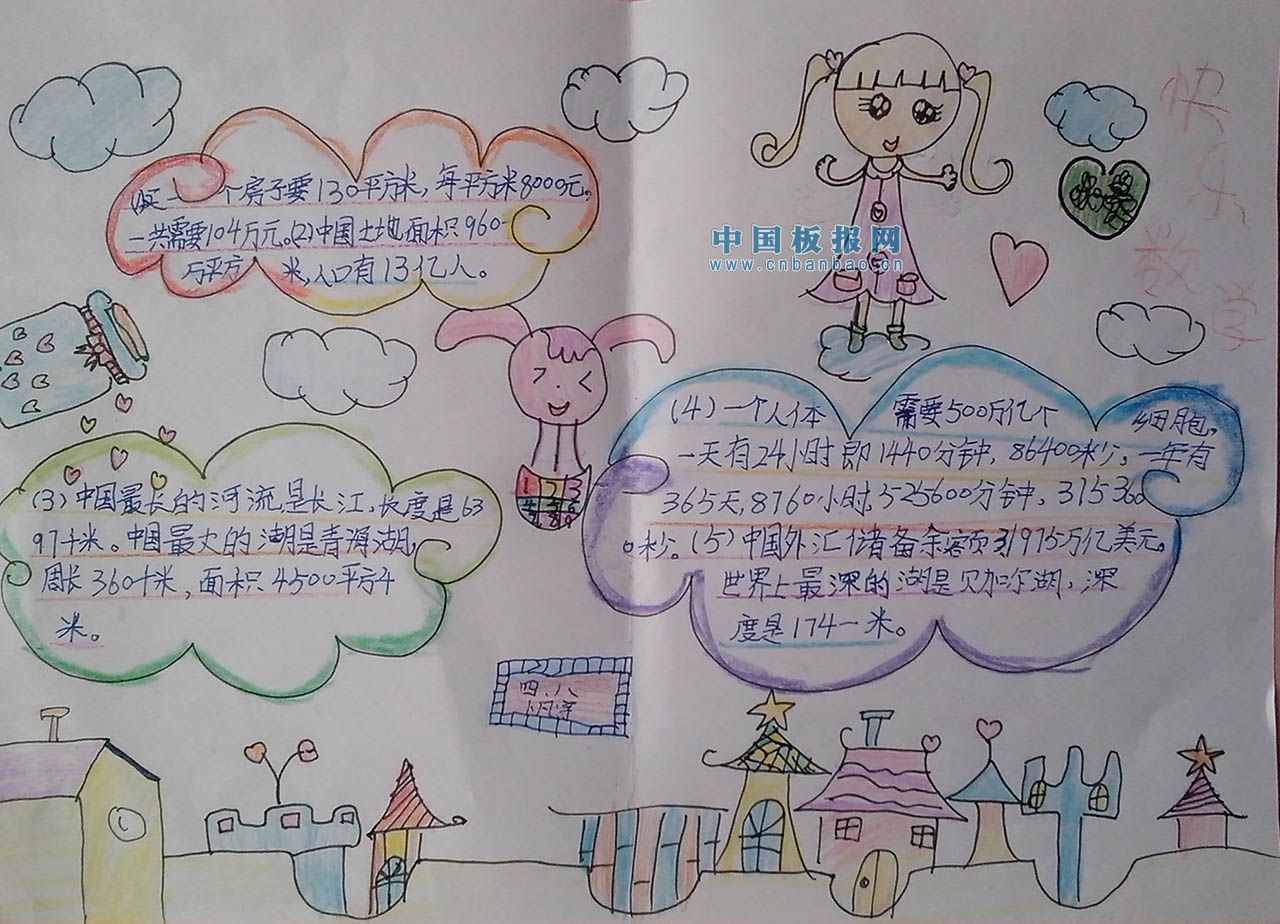 快乐数学
一个房子要130平方米,每平方米8000元。
一共需要104万元。(2)中国土地面积960
万平方米,人口有13亿人。
中国板报网
www.cnbanbao.cn
(3)中国最长的河流是长江,长度是63
97千米。中国最大的湖是青海湖,
周长360千米,面积4500平方千
米。
(4)一个人体需要500万亿个细胞。
一天有24小时即1440分钟,86400秒。一年有
365天,8760小时,525600分钟,3153600
0秒。(5)中国外汇储备余额31975万亿美元。
世界上最深的湖是贝加尔湖,深
度是1741米。
1 2 3
四、八